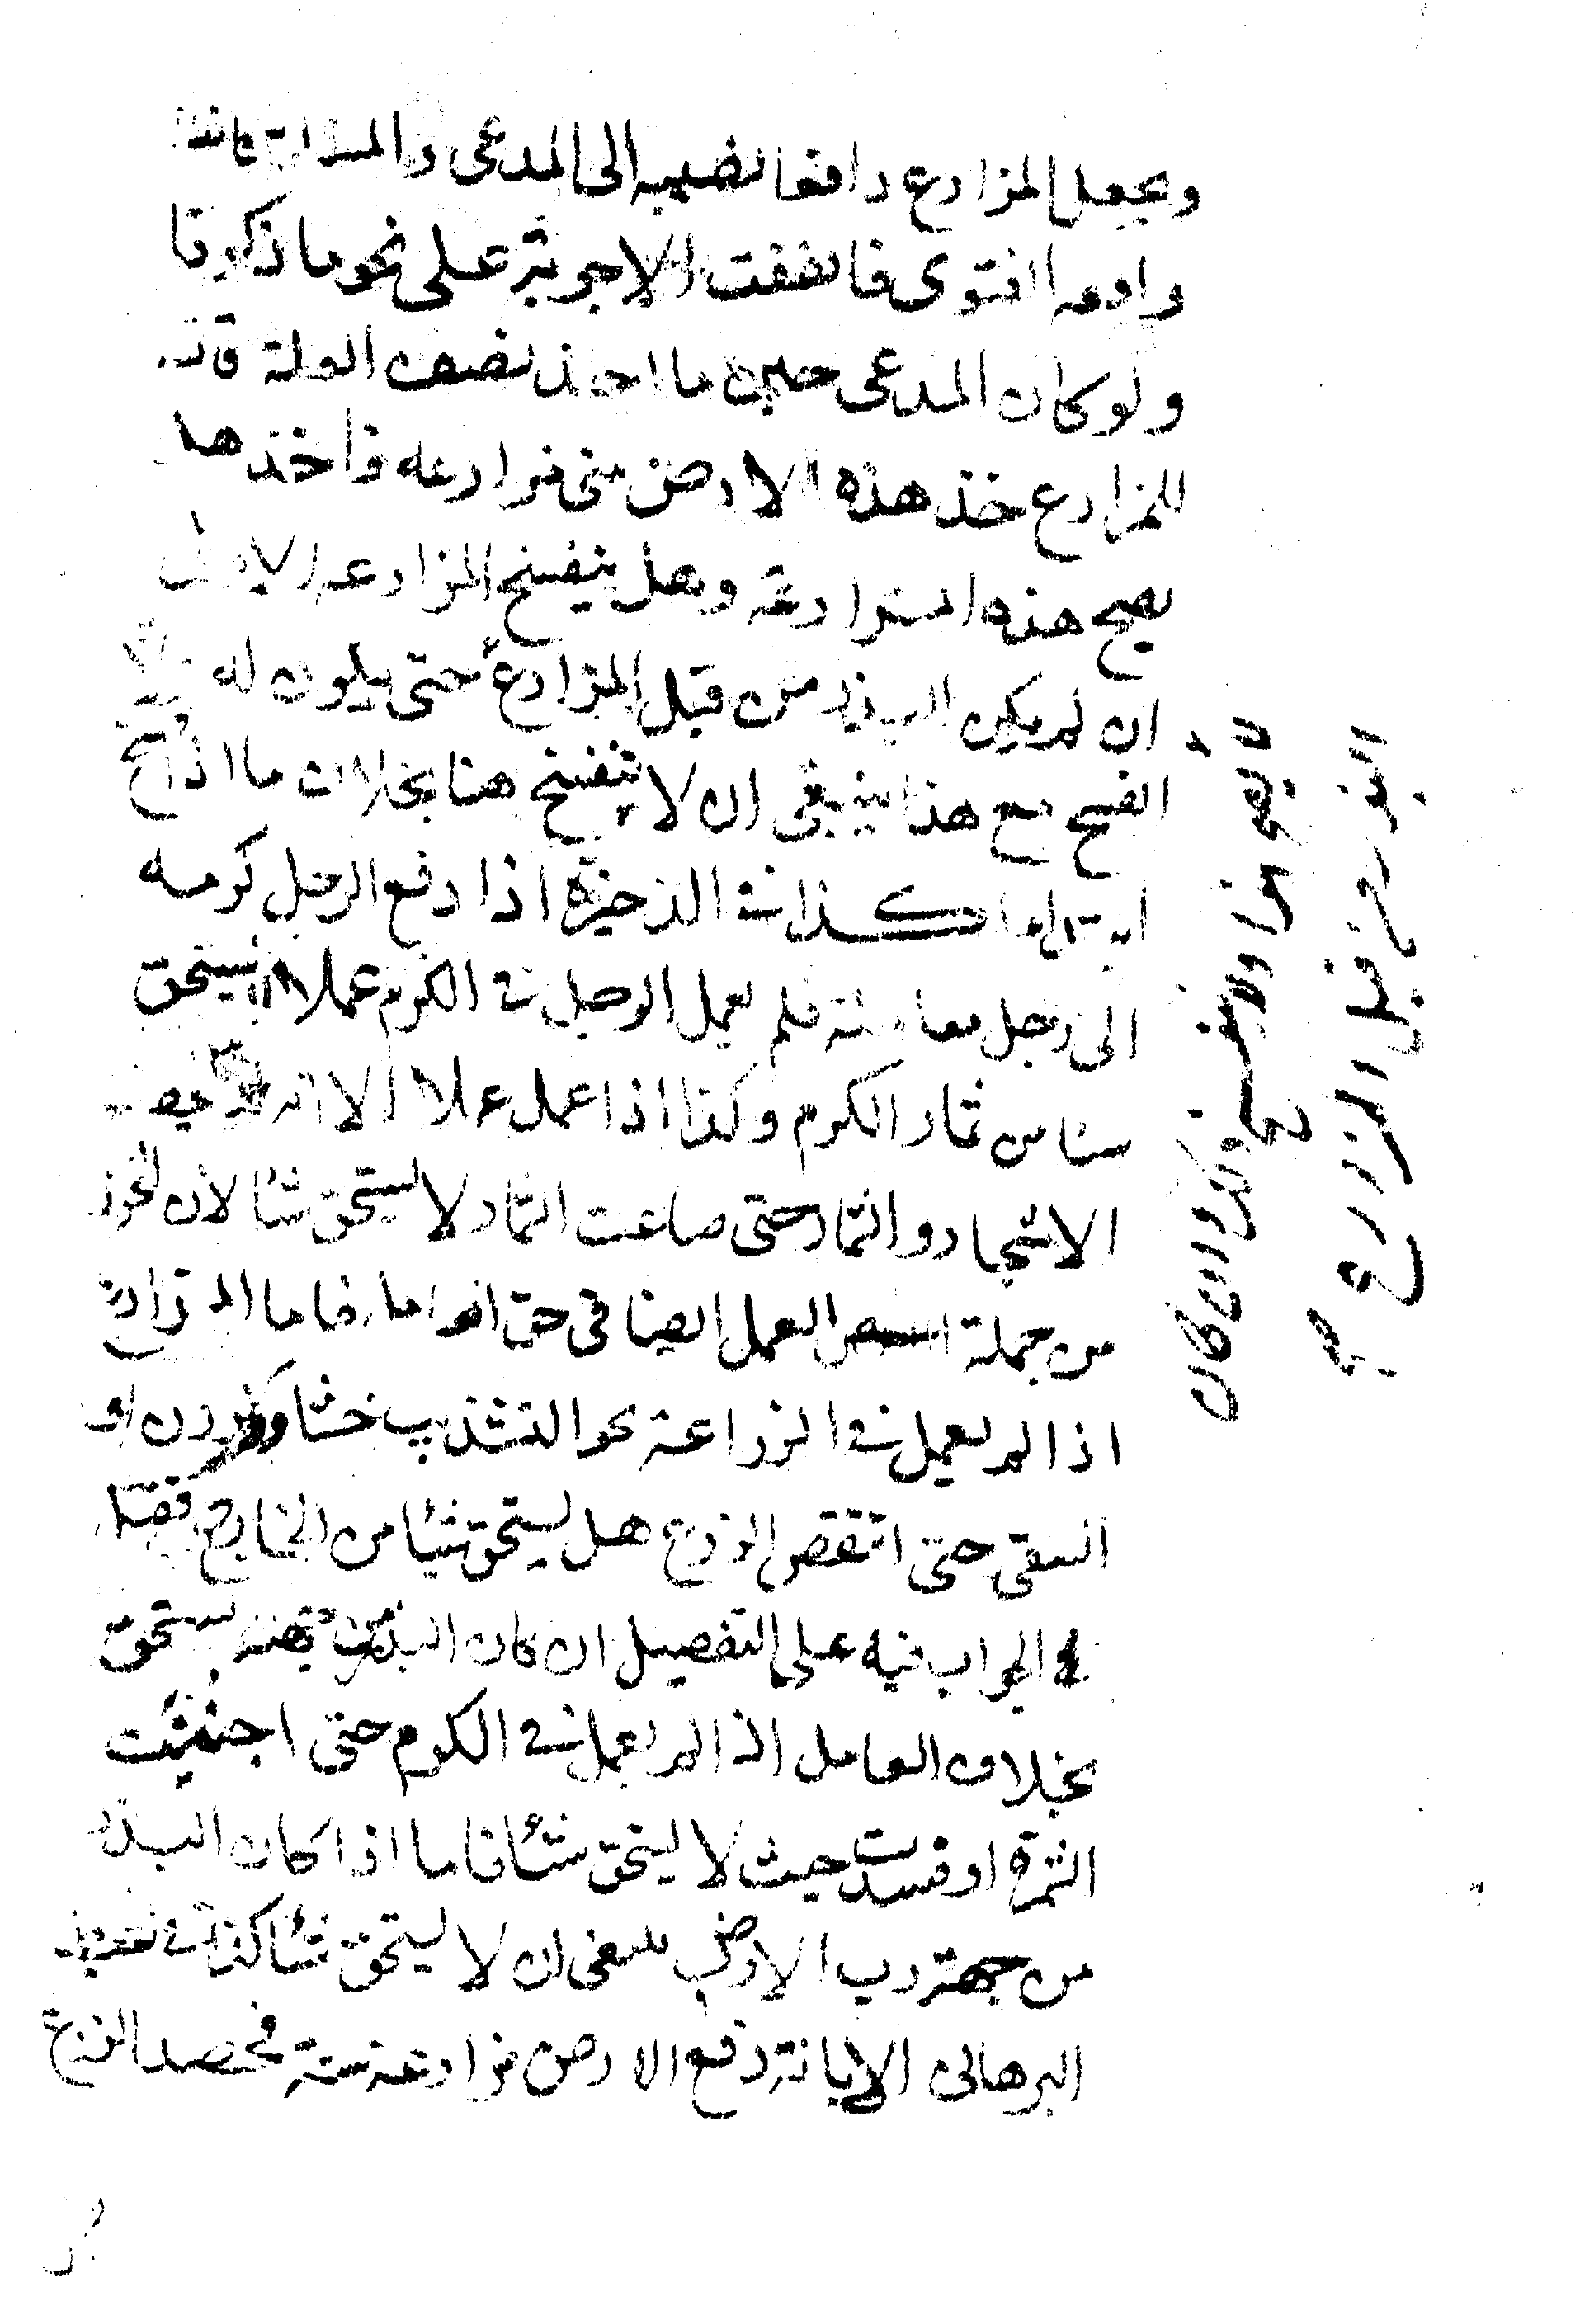 ويجعل المزارع دافعا نصيبه الى المدعى والمسألة كانت
واقعه الفتوى فاتفقت الاجوبة على نحو ما ذكرنا
ولو كان المدعى حين ما اخذ نصف الغلة قال
للمزارع خذ هذه الارض منى مزارعه فاخذها
يصح هذه المزارعة وهل ينفسخ المزارعه الاولى
ان لم يكن البذر من قبل المزارع حتى يكون له
الفسخ مع هذا ينبغى ان لا ينفسخ هنا بخلاف ما اذا فسخ
ابتداء كذا فى الذخيرة اذا دفع الرجل كرمه
الى رجل معاملة فلم يعمل الرجل فى الكرم عملا لا يستحق
شيئا من ثمار الكرم وكذا اذا عمل عملا الا انه لم يحفظ
الاشجار والثمار حتى ضاعت الثمار لا يستحق شيئا لان
من جملة العمل ايضا فى حق العامل فاما المزارع
اذا لم يعمل فى الزراعة نحو التشذيب او
السقى حتى انتقص الزرع هل يستحق شيئا من الخارج فقيل
الجواب فيه على التفصيل ان كان البذر من جهته يستحق
بخلاف العامل اذا لم يعمل فى الكرم حتى اجتنيت
الثمرة او فسدت حيث لا يستحق شيئا فاما اذا كان البذر
من جهة رب الارض ينبغى ان لا يستحق شيئا كذا فى محيط
البرهانى الابانة دفع الارض مزارعة سنة فحصد الزرع
وان كان
البذر من قبل المزارع